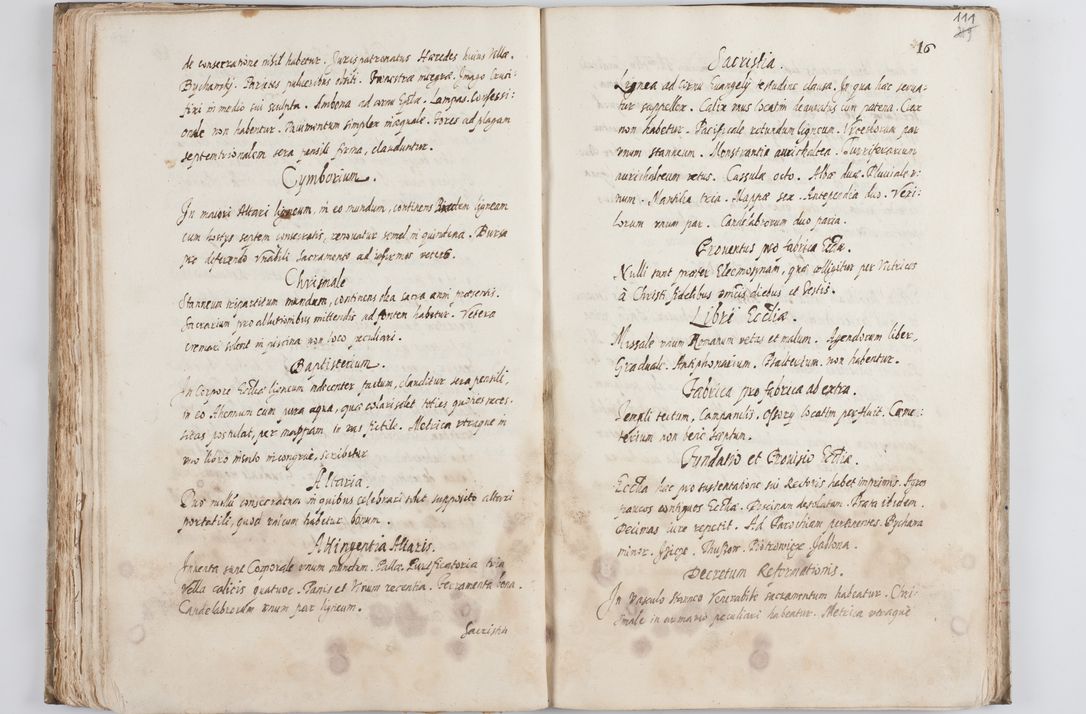 de consecratione nihil habetur. Juris patronatus Haeredes huius Villae.
Bycharsky. Parietes pulveribus obsiti. Fenestrae integrae. Imago Cruci-
fixi in medio sui sculpta. Ambona ad cornu Eplae. Lampas. Confessi-
onale non habentur. Pauimentum simplex inaequale. Fores ad plagam
septentrionalem sera pensili firma, clauduntur.
Cymborium.
In maiori Altari ligneum, in eo mundum, continens ligneam
cum hostys septem consecratis, renouatur semel in quindena. Bursa
pro deferendo Vnrabili Sacramento ad infirmos
Chrismale
Stanneum tripartitum mundum, continens olea sacra anni praesentis.
Sacrarium pro ablutionibus mittendis ad fontem habetur. Vetera
cremari solent in piscina non loco peculiari.
Baptisterium.
In Corpore Ecclae ligneum indecenter factum, clauditur sera pensili,
in eo Ahenum cum pura aqua, quae colari solet toties quoties neces-
sitas postulat, per mappam in vas fictile. Metrica vtraque in
vno libro incongrue, scribitur
Altaria.
Duo nulli consecratum in quibus celebrari solet supposito altari
portatili, quod vnicum habetur bonum.
Attinentia Altaris.
Inuenta sunt Corporale vnum mundum. Pallae. Purificatoria tria
Vella calicis quatuor. Panis et Vinum recentia. Tecramenta bona.
Candelabrorum vnum par ligneum.
Sacristia
111
16
Sacristia.
Lignea ad cornu Euangelij testudine clausa. In qua haec serua-
tur suppellex. Calix vnus locatim deauratus cum patena. Crux
non habetur. Pacificale rotundum ligneum. Vrceolorum par
vnum stanneum. Monstrantia aurichalcea. Turriferarium
aurichalceum vetus. Cassulae octo. Albae duae. Pluuiale v-
num. Mantilia tria. Mappae sex. Antependia duo. Vexi-
lorum vnum par. Candelabrorum duo paria.
Prouentus pro fabrica Eclae.
Nulli sunt praeter Elecmosynam, quae colligitur per Vitricos
à Christi fidelibus diebus et Festis.
Libri Ecclae.
Missale vnum Romanum vetus et malum. Agendorum liber,
Graduale. Antiphonarium. Psalterium. non habentur.
Fabrica pro fabrica ad extra.
Templi tectum. Campanilis. Ossorij locatim perfluit. Cœme-
terium non bene septum.
Fundatio et Prouisio Ecclae.
Ecclia haec pro sustentatione sui Rectoris habet inprimis. Agros
contiguos Ecclae. Piscinam desolatam. Prata ibidem.
Decimas iure repetit. Ad Parochiam pertinentes. Bychawa
minor. Gięczę. Thuszow. Piotrowicze. Jablona.
Decretum Reformationis.
In Vasculo stanneo Venerabile sacramentum habeatur. Chri-
smale in armario peculiari habeatur. Metrica vtraque